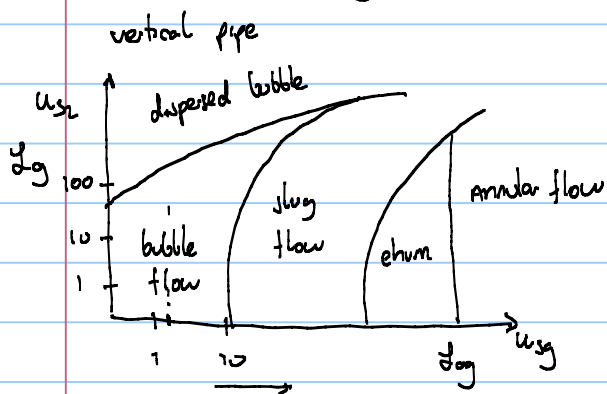 vertical pipe
dispersed bubble
u_SL
Log
100
10
1
bubble
flow
slug
flow
churn
Annular flow
1
10
Log
u_sg